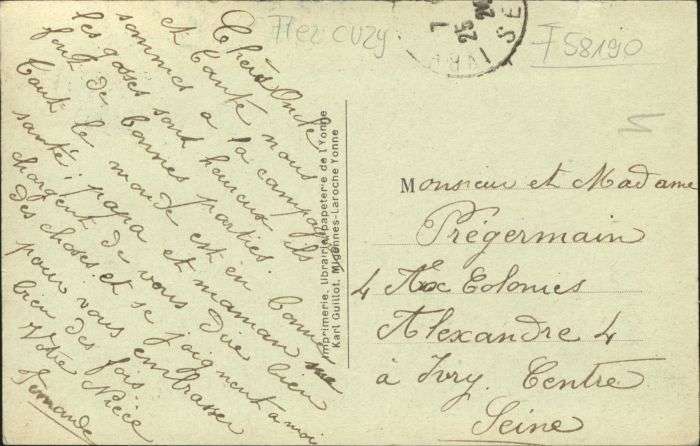 Chers Oncle
et Tante nous
sommes a la campagne
les gosses sont heureux ils
font de bonnes parties.
Tout le monde est en bonne
santé, papa et maman me
chargent de vous dire bien
des choses et se joignent a moi
pour vous embrasser
bien des fois.
Votre Nièce
Fernande
Imprimerie, librairie, papeterie de l'Yonne
Karl Guillot, Migennes-Laroche Yonne
7 25
SE
F 58190
Monsieur et Madame
Prégermain
4 Colonies
Alexandre 4
à Ivry Centre
Seine